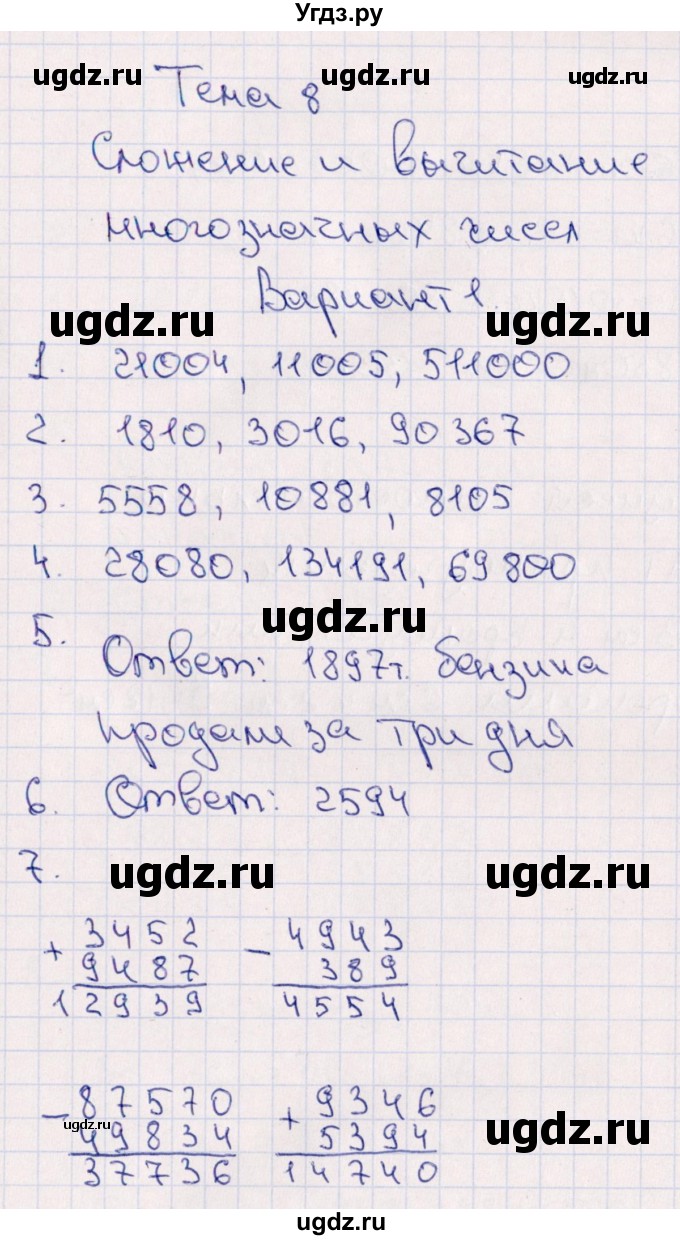 Угдз.ру
ugdz.ru ugdz.ru ugdz.ru
Тема 8
Сложение и вычитание
многозначных чисел
Вариант 1.
ugdz.ru ugdz.ru
1. 21004, 11005, 511000
2. 1810, 3016, 90367
3. 5558, 10881, 8105
4. 28080, 134191, 69800
ugdz.ru
5. Ответ: 1897т. бензина
продали за три дня
6. Ответ: 2594
7.
ugdz.ru ugdz.ru
+ 3452 - 4943
9487 389
12939 4554
- 87570 + 9346
ugdz.ru ugdz.ru
49834 5394
37736 14740
ugdz.ru